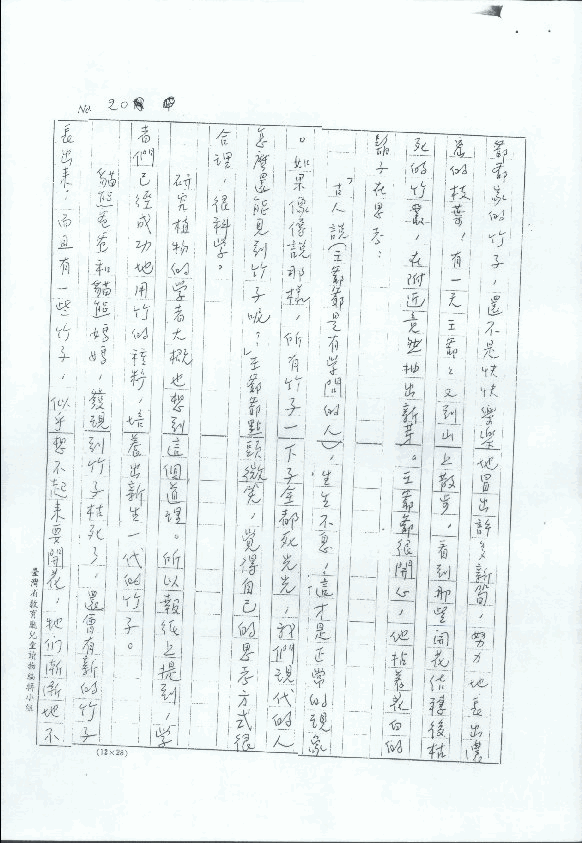 No. 20
爺爺家的竹子，還不是快快樂樂地冒出許多新筍，努力地長出濃
的枝葉，有一天王爺爺又到山上散步，看到那些開花結穗後枯
死的竹叢，在附近竟然抽出新芽。王爺爺很開心，他拈著花白的
鬍子在思考：
「古人說（王爺爺是有學問的人），生生不息，這才是正常的現象
。如果像傳說那樣，所有竹子一下子全都死光光，我們現代的人
怎麼還能見到竹子呢？」王爺爺點頭微笑，覺得自己的思考方式很
合理，很科學。
研究植物的学者大概也想到這個道理。所以報紙上提到，学
者們已經成功地用竹的種籽，培養出新生一代的竹子。
貓熊爸爸和貓熊媽媽，發現到竹子枯死了，還會有新的竹子
長出來，而且有一些竹子，似乎想不起来要開花，牠们漸漸地不
臺灣省教育廳兒童讀物編輯小組
(12×25)